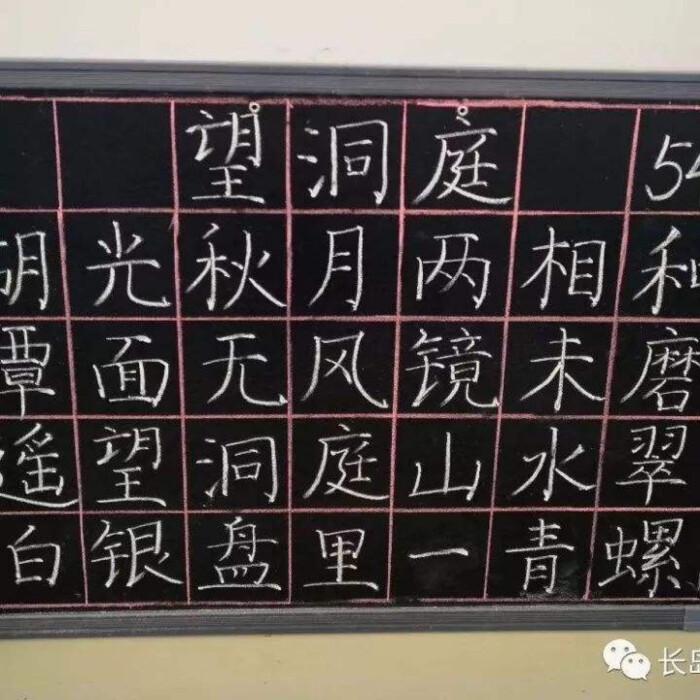 望洞庭 54
湖光秋月两相和
潭面无风镜未磨
遥望洞庭山水翠
白银盘里一青螺
长岛